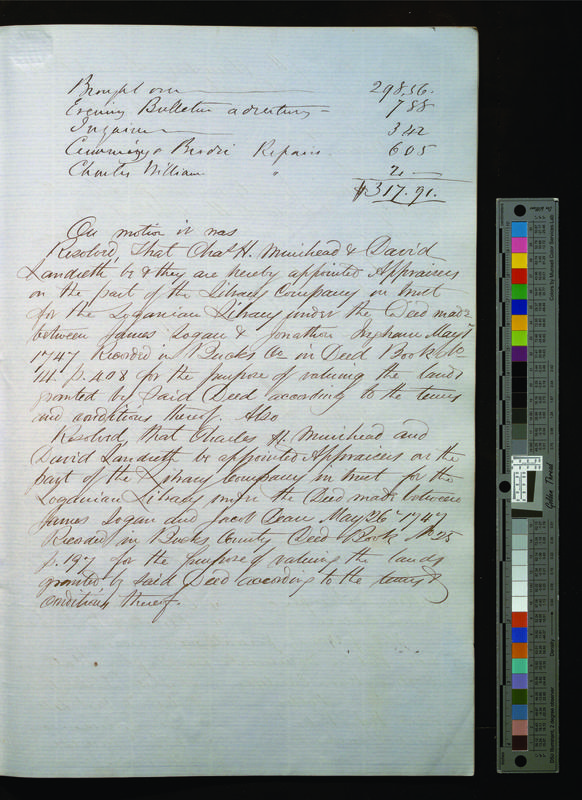 Brought over 298.56.
Evening Bulletin advertising 7 88
Inquirer 3 42
Cummings & Brodie Repairs. 6 05
Charles William " 2. —
$317.91.
On motion it was
Resolved, That Chas. H. Muirhead & David
Landreth be & they are hereby appointed Appraisers
on the part of the Library Company in trust
for the Loganian Library under the Deed made
between James Logan & Jonathan May
1747 Recorded in Bucks Co. in Deed Book No.
14 p. 408 for the purpose of valuing the lands
granted by said Deed according to the terms
and conditions thereof. Also
Resolved, that Charles H. Muirhead and
David Landreth be appointed Appraisers on the
part of the Library Company in trust for the
Loganian Library under the Deed made between
James Logan and Jacob Dean May 26 1747
Recorded in Bucks County Deed Book No 25
p. 197 for the purpose of valuing the lands
granted by said Deed according to the terms &
conditions thereof.
Golden Thread